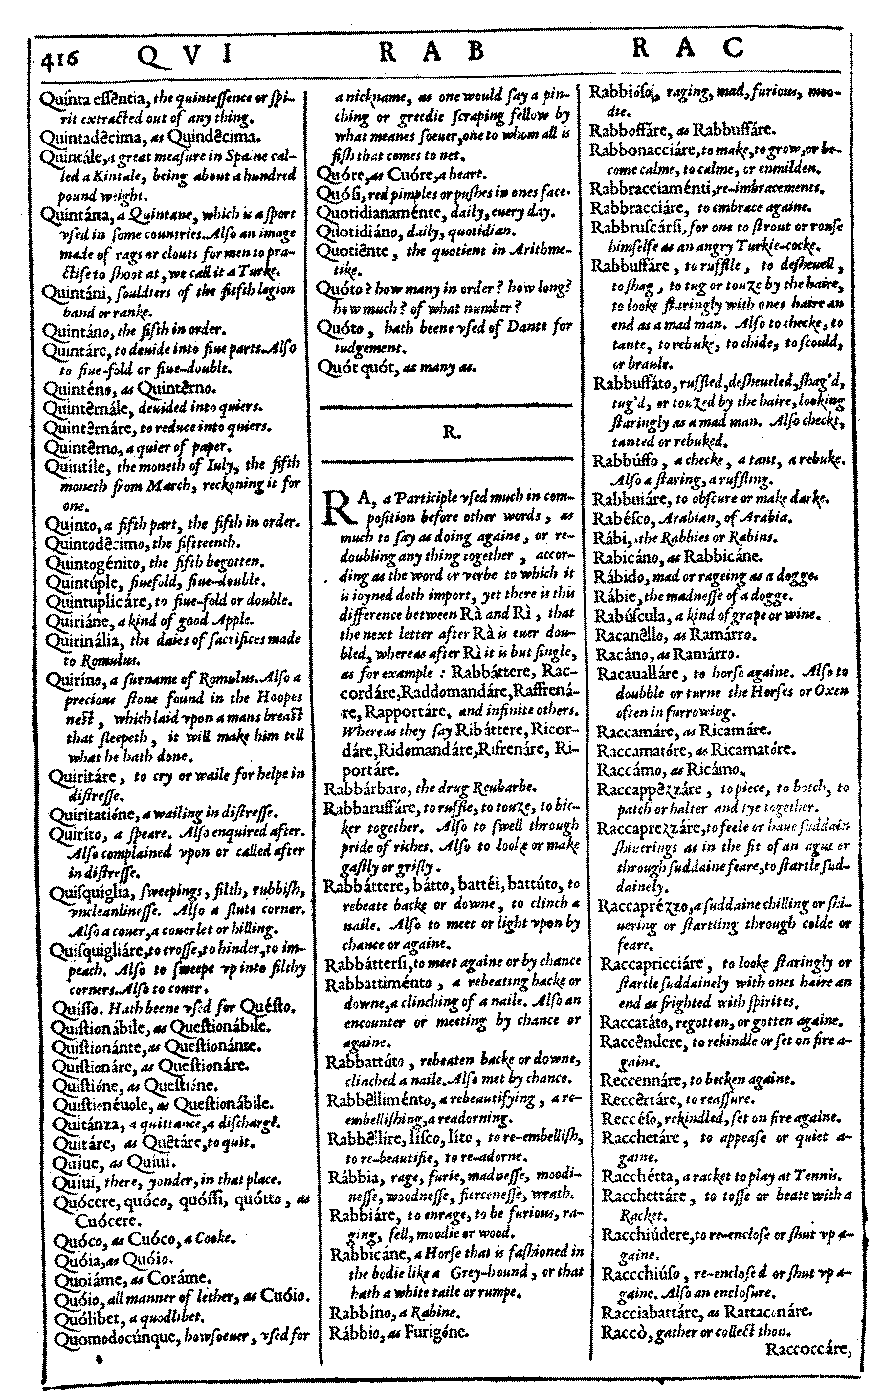 416 QVI RAB RAC
Quínta essẽntia, the quintessence or spi-
rit extracted out of any thing.
Quintadẽcima, as Quindẽcima.
Quintále, a great measure in Spaine cal-
led a Kintale, being about a hundred
pound weight.
Quintána, a Quintane, which is a sport
vsed in some countries. Also an image
made of rags or clouts for men to pra-
ctise to shoot at, we call it a Turke.
Quintáni, souldiers of the fifth legion
band or ranke.
Quintáno, the fifth in order.
Quintáre, to deuide into fiue parts. Also
to fiue-fold or fiue-double.
Quinténo, as Quintẽrno.
Quintẽrnále, deuided into quiers.
Quintẽrnáre, to reduce into quiers.
Quintẽrno, a quier of paper.
Quintíle, the moneth of Iuly, the fifth
moneth from March, reckoning it for
one.
Quínto, a fifth part, the fifth in order.
Quintodẽcimo, the fifteenth.
Quintogénito, the fifth begotten.
Quintúple, fiuefold, fiue-double.
Quintuplicáre, to fiue-fold or double.
Quiriáne, a kind of good Apple.
Quirinália, the daies of sacrifices made
to Romulus.
Quiríno, a surname of Romulus. Also a
precious stone found in the Hoopes
nest, which laid vpon a mans breast
that sleepeth, it will make him tell
what he hath done.
Quiritáre, to cry or waile for helpe in
distresse.
Quiritatióne, a wailing in distresse.
Quiríto, a speare. Also enquired after.
Also complained vpon or called after
in distresse.
Quisquiglia, sweepings, filth, rubbish,
vncleanlinesse. Also a sluts corner.
Also a couer, a couerlet or hilling.
Quisquigliáre, to crosse, to hinder, to im-
peach. Also to sweepe vp into filthy
corners. Also to couer.
Quísso. Hath beene vsed for Quésto.
Quistionábile, as Questionábile.
Quistionánte, as Questionánte.
Quistionáre, as Questionáre.
Quistióne, as Questióne.
Quistionéuole, as Questionábile.
Quitánza, a quittance, a discharge.
Quitáre, as Quẽtáre, to quit.
Quíue, as Quíui.
Quíui, there, yonder, in that place.
Quócere, quóco, quóssi, quótto, as
Cuócere.
Quóco, as Cuóco, a Cooke.
Quóia, as Quóio.
Quoiáme, as Coráme.
Quóio, all manner of lether, as Cuóio.
Quólibet, a quodlibet.
Quomodocúnque, howsoeuer, vsed for
a nickname, as one would say a pin-
ching or greedie scraping fellow by
what meanes soeuer, one to whom all is
fish that comes to net.
Quóre, as Cuóre, a heart.
Quósi, red pimples or pushes in ones face.
Quotidianaménte, daily, euery day.
Quotidiáno, daily, quotidian.
Quotiẽnte, the quotient in Arithme-
tike.
Quóto? how many in order? how long?
how much? of what number?
Quóto, hath beene vsed of Dante for
iudgement.
Quót quót, as many as.
R.
RA, a Participle vsed much in com-
position before other words, as
much to say as doing againe, or re-
doubling any thing together, accor-
ding as the word or verbe to which it
is ioyned doth import, yet there is this
difference between Rà and Rì, that
the next letter after Rà is euer dou-
bled, whereas after Rì it is but single,
as for example: Rabbáttere, Rac-
cordáre, Raddomandáre, Raffrená-
re, Rapportáre, and infinite others.
Whereas they say Ribáttere, Ricor-
dáre, Ridomandáre, Rifrenáre, Ri-
portáre.
Rabbárbaro, the drug Reubarbe.
Rabbaruffáre, to ruffle, to touze, to bic-
ker together. Also to swell through
pride of riches. Also to looke or make
gastly or grisly.
Rabbáttere, bátto, battéi, battúto, to
rebeate backe or downe, to clinch a
naile. Also to meet or light vpon by
chance or againe.
Rabbáttersi, to meet againe or by chance
Rabbattiménto, a rebeating backe or
downe, a clinching of a naile. Also an
encounter or meeting by chance or
againe.
Rabbattúto, rebeaten backe or downe,
clinched a naile. Also met by chance.
Rabbẽlliménto, a rebeautifying, a re-
embellishing, a readorning.
Rabbẽllíre, lísco, líto, to re-embellish,
to re-beautifie, to re-adorne.
Rábbia, rage, furie, madnesse, moodi-
nesse, woodnesse, fiercenesse, wrath.
Rabbiáre, to enrage, to be furious, ra-
ging, fell, moodie or wood.
Rabbicáne, a Horse that is fashioned in
the bodie like a Grey-hound, or that
hath a white taile or rumpe.
Rabbíno, a Rabine.
Rábbio, as Furigóne.
Rabbióso, raging, mad, furious, moo-
die.
Rabboffáre, as Rabbuffáre.
Rabbonacciáre, to make, to grow, or be-
come calme, to calme, or enmilden.
Rabbracciaménti, re-imbracements.
Rabbracciáre, to embrace againe.
Rabbruscársi, for one to strout or rouse
himselfe as an angry Turkie-cocke.
Rabbuffáre, to ruffle, to desheuell,
to shag, to tug or touze by the haire,
to looke staringly with ones haire an
end as a mad man. Also to checke, to
tante, to rebuke, to chide, to scould,
or braule.
Rabbuffáto, ruffled, desheueled, shag'd,
tug'd, or touzed by the haire, looking
staringly as a mad man. Also checkt,
tanted or rebuked.
Rabbúffo, a checke, a tant, a rebuke.
Also a staring, a ruffling.
Rabbuiáre, to obscure or make darke.
Rabésco, Arabian, of Arabia.
Rábi, the Rabbies or Rabins.
Rabicáno, as Rabbicáne.
Rábido, mad or rageing as a dogge.
Rábie, the madnesse of a dogge.
Rabúscula, a kind of grape or wine.
Racanẽllo, as Ramárro.
Racáno, as Ramárro.
Racauálláre, to horse againe. Also to
doubble or turne the Horses or Oxen
often in furrowing.
Raccamáre, as Ricamáre.
Raccamatóre, as Ricamatóre.
Raccámo, as Ricámo.
Raccappẽzzáre, to piece, to botch, to
patch or halter and tye together.
Raccaprezzáre, to feele or haue suddain
shiuerings as in the fit of an ague or
through suddaine feare, to startle sud-
dainely.
Raccaprézzo, a suddaine chilling or shi-
uering or startling through colde or
feare.
Raccapricciáre, to looke staringly or
startle suddainely with ones haire an
end as frighted with spirites.
Raccatáto, regotten, or gotten againe.
Raccẽndere, to rekindle or set on fire a-
gaine.
Reccennáre, to becken againe.
Reccẽrtáre, to reassure.
Reccéso, rekindled, set on fire againe.
Racchetáre, to appease or quiet a-
gaine.
Racchétta, a racket to play at Tennis.
Racchettáre, to tosse or beate with a
Racket.
Racchiúdere, to re-enclose or shut vp a-
gaine.
Raccchiúso, re-enclosed or shut vp a-
gaine. Also an enclosure.
Racciabattáre, as Rattaconáre.
Raccò, gather or collect thou.
Raccoccáre,